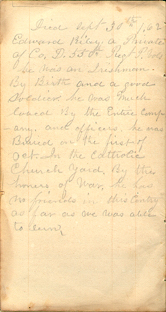 Died Sept 30th, 62
Edward Riley a Private
of Co. D. 55th Regt
he was an Irishman -
By Birth and a good
Soldier he was much
Loved By the Entire Comp
any and officers. he was
Buried on the first of
Oct. in the Catholic
Church Yard, By the
honors of War, he has
no friends in this Country
as far as we was able
to learn,